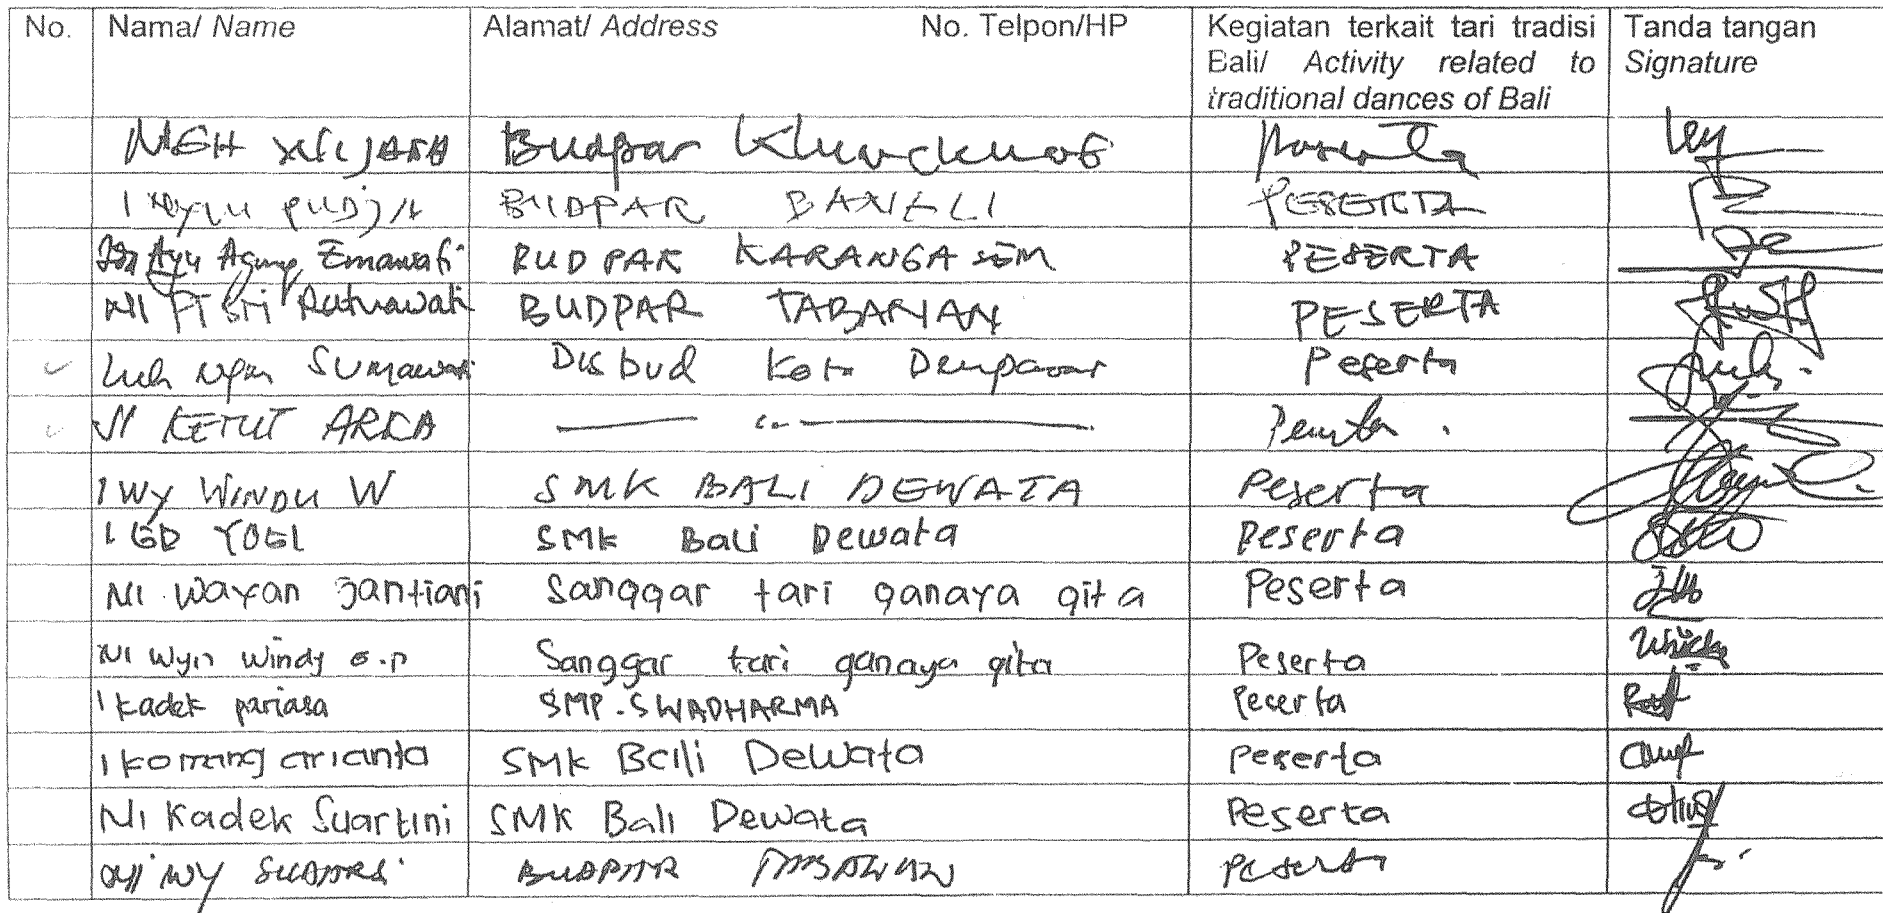 No. Nama/ Name Alamat/ Address No. Telpon/HP Kegiatan terkait tari tradisi Tanda tangan
Bali/ Activity related to Signature
traditional dances of Bali
NGH WIJANA Budpar Klungkung Peserta
I Wayan PUDJA BUDPAR BANGLI PESERTA
Ida Ayu Agung Emawati BUDPAR KARANGASEM PESERTA
NI PT Sri Ratnawati BUDPAR TABANAN PESERTA
Luh Sumawati Disbud Kota Denpasar Peserta
NI KETUT ARKA — " — Peserta.
I WY WINDU W SMK BALI DEWATA Peserta
I GD YOGI SMK Bali Dewata Peserta
NI Wayan Jantiani Sanggar tari ganaya gita Peserta
NI Wyn Windy S.P Sanggar tari ganaya gita Peserta
I kadek pariasa SMP. SWADHARMA Peserta
I komang arianta SMK Bali Dewata Peserta
NI Kadek Suartini SMK Bali Dewata Peserta
NI WY BUDPAR TABANAN Peserta